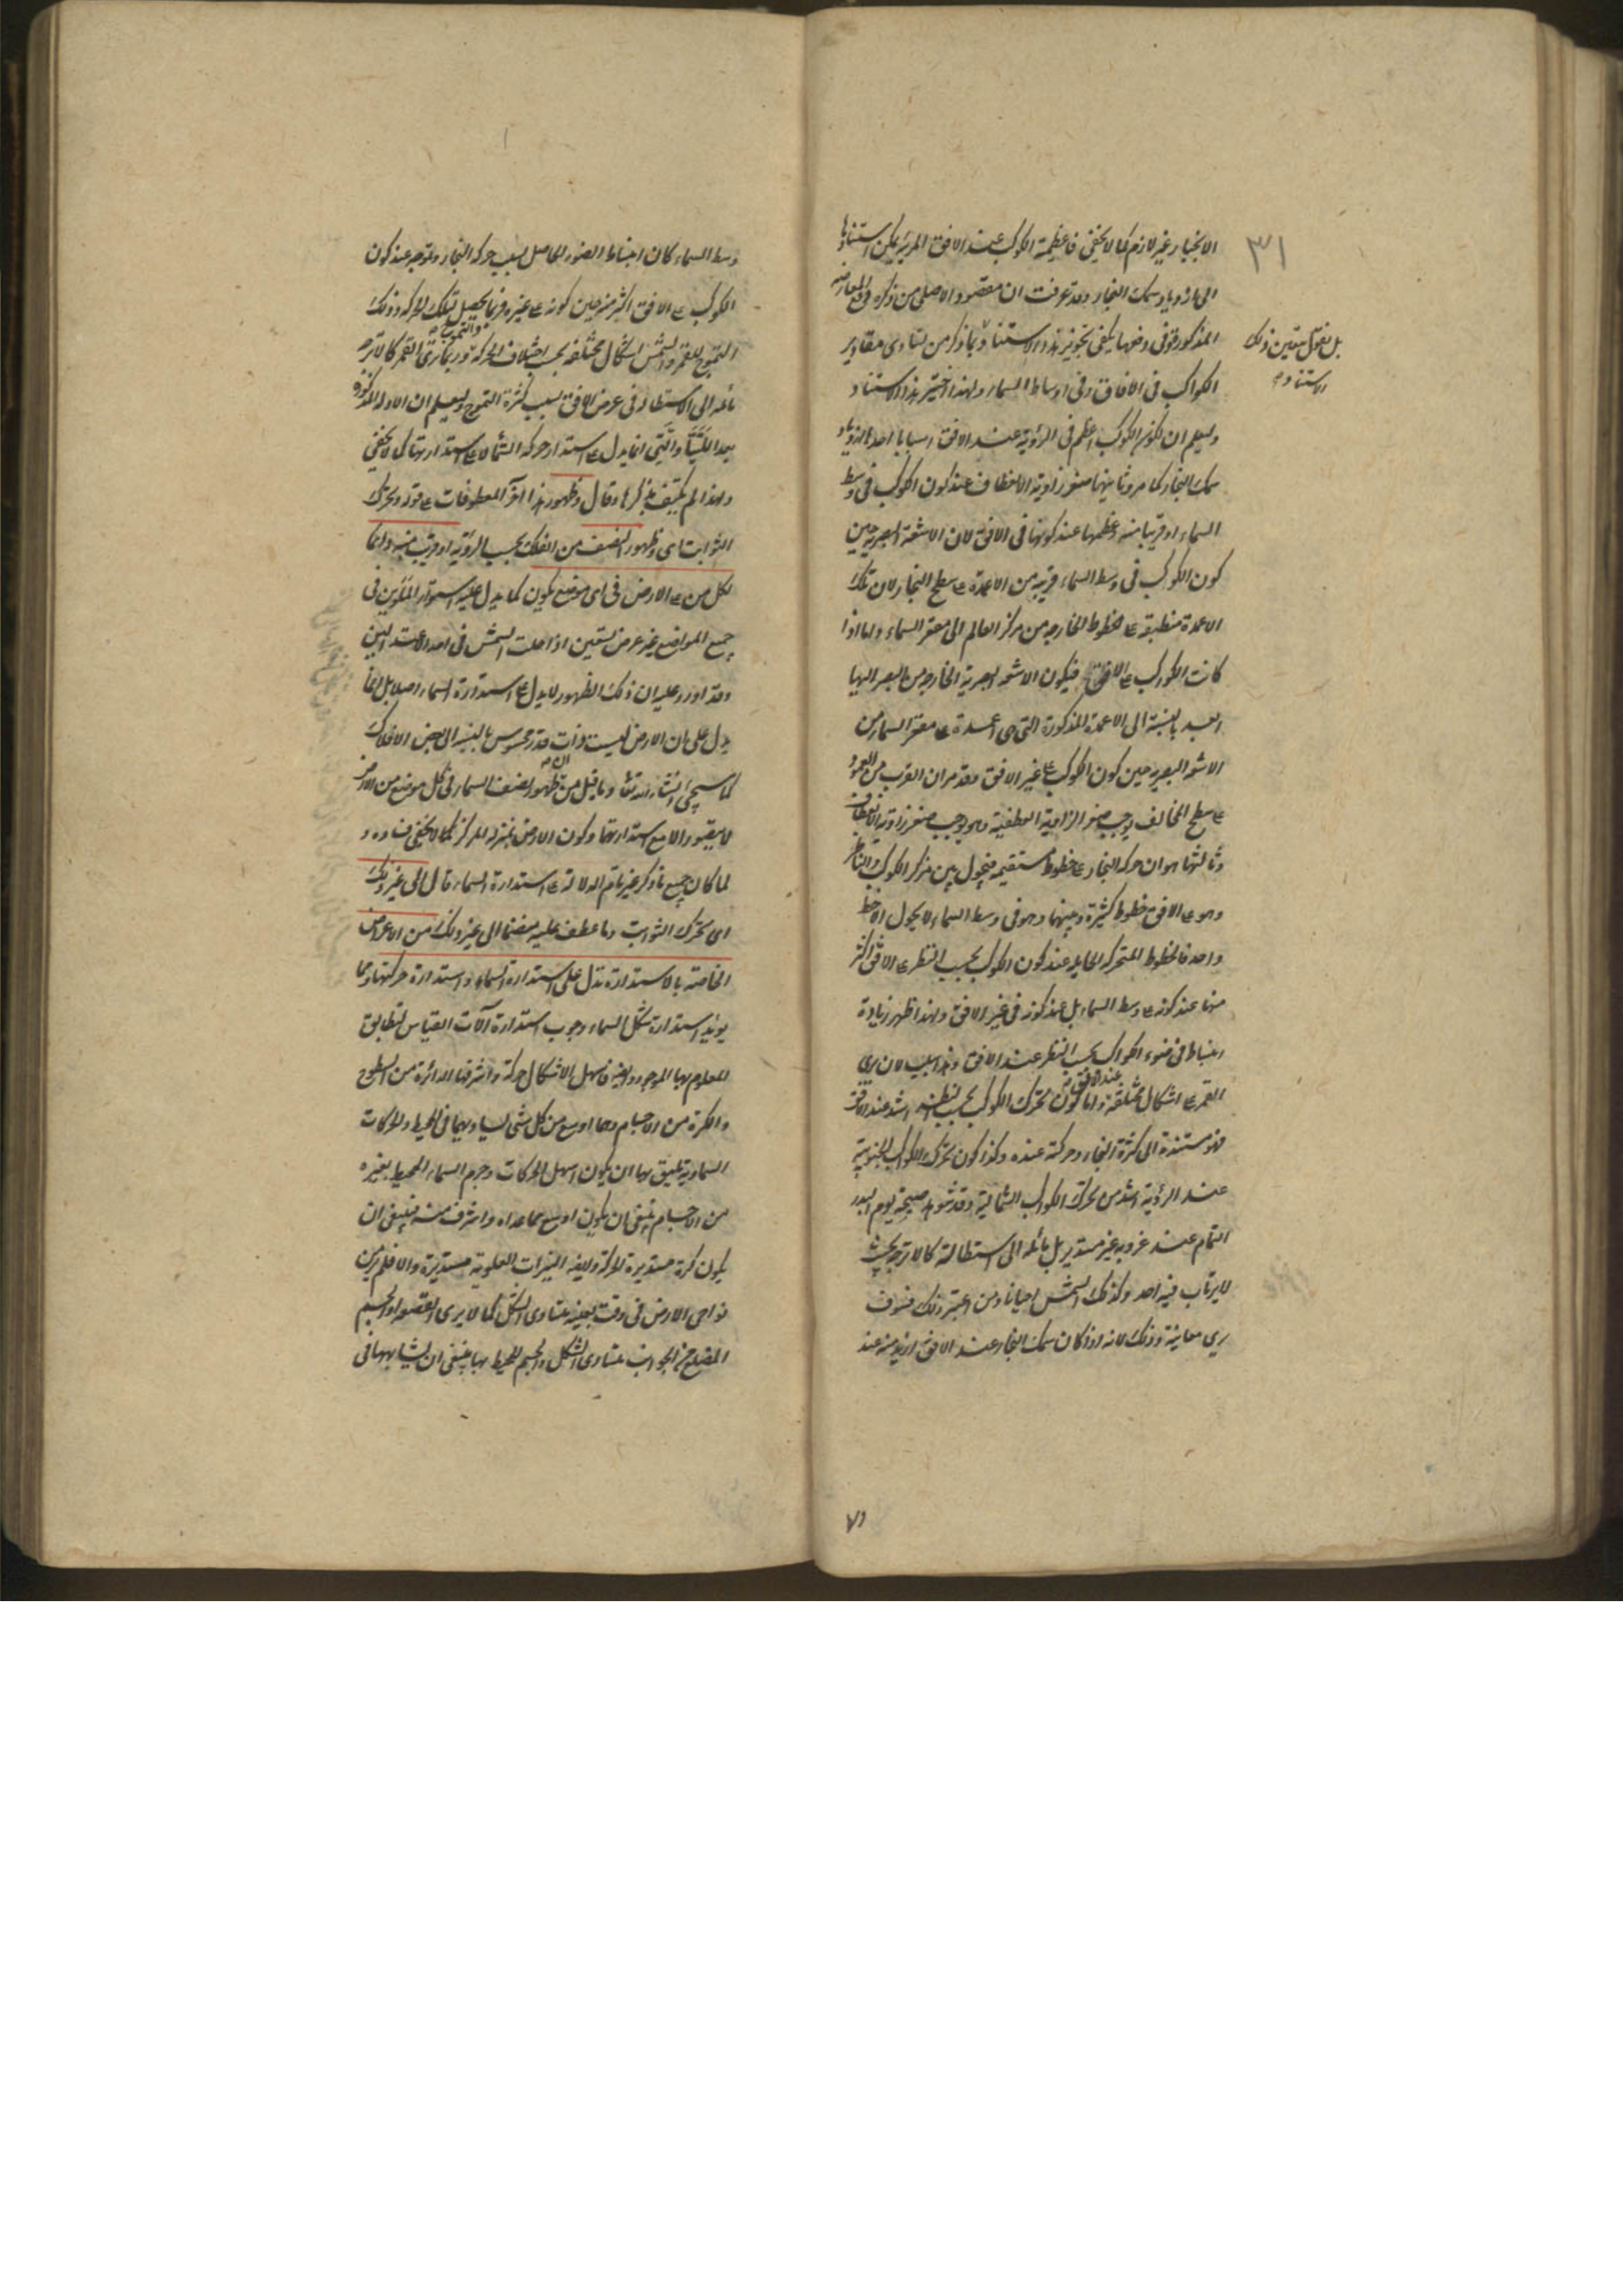 ٣١
الانجبار غير لازم كما لا يخفى فاعظمية الكوكب عند الافق المرئية يمكن استنادها
الى ازدياد سمك البخار وقد عرفت ان مقصوده الاصلي من ذكره دفع المعارضة
المذكورة وفى دفعها يكفى تجويز هذا الاستناد وبما ذكر من تساوى مقادير
بل نقول يتعين ذلك
الاستناد صح
الكواكب فى الافاق وفى اوساط السماء ولهذا اختير هذا الاستناد
وليعلم ان لكون الكوكب اعظم فى الرؤية عند الافق اسبابا احدها ازدياد
سمك البخار كما مر وثانيهما صغر زاوية الانعطاف عند كون الكوكب فى وسط
السماء او قريبا منه وعظمها عند كونها فى الافق لان الاشعة البصرية حين
كون الكوكب فى وسط السماء قريبة من الاعمدة على سطح البخار لان تلك
الاعمدة منطبقة على الخطوط الخارجة من مركز العالم الى مقعر السماء واما اذا
كانت الكوكب على الافق فيكون الاشعة البصرية الخارجة من البصر اليها
ابعد بالنسبة الى الاعمدة المذكورة التى هى اعمدة على مقعر السماء من
الاشعة البصرية حين كون الكوكب على غير الافق وقد مر ان القرب من العمود
على سطح المخالف يوجب صغر الزاوية العطفية وهو يوجب صغر زاوية الانعطاف
وثالثها هو ان حركة البخار على خطوط مستقيمة فيحول بين مركز الكوكب والناظر
وهو على الافق خطوط كثيرة وبينهما وهو فى وسط السماء لا يحول الا خط
واحد فالخطوط المتحركة الحايلة عند كون الكوكب بحسب النظر على الافق اكثر
منها عند كونه على وسط السماء بل عند كونه فى غير الافق ولهذا ظهر زيادة
انبساط فى ضوء الكواكب بحسب النظر عند الافق وهذا سبب لان يرى
القمر على اشكال مختلفة عند الافق واما كون تحرك الكوكب بحسب النظر اشد عند الافق
فهو مستندة الى كثرة البخار وحركته عنده وكذا كون تحرك الكواكب الجنوبية
عند الرؤية اشد من تحرك الكواكب الشمالية وقد شوهد صبيحة يوم البدر
التمام عند غروبه غير مستدير بل مائله الى استطالة كالاترجة بحيث
لا يرتاب فيه احد وكذلك الشمس احيانا ومن اعتبر ذلك فسوف
يرى معاينة وذلك لانه اذا كان سمك البخار عند الافق ازيد منه عند
وسط السماء كان انبساط الضوء الحاصل بسبب حركة البخار وتموجه عند كون
الكوكب على الافق اكثر منه حين كونه على غيره فربما يحصل بتلك الحركة وذلك
التموج للقمر والشمس اشكال مختلفة بحسب اختلاف الحركة والتموج وربما يرى القمر كالاترجة
مائله الى الاستطالة فى عرض الافق بسبب كثرة التموج وليعلم ان الادلة المذكورة
بعد اللتيا والتى انما يدل على استدارة حركة السماء لا على استدارتها كما لا يخفى
ولهذا لم يكتف بذكرها وقال وظهور هذا آخر المعطوفات على قوله وتحرك
الثوابت اى وظهور النصف من الفلك بحسب الرؤية او قريب منه دائما
لكل من على الارض فى اى موضع يكون كما يدل عليه استواء الملوين فى
جميع المواضع غير عرض تسعين اذا حلت الشمس فى احد الاعتدالين
وقد اورد عليه ان ذلك الظهور لا يدل على استدارة السماء اصلا بل انما
يدل على ان الارض ليست ذات قدر محسوس بالنسبة الى بعض الافلاك
كما سيجئ انشاء الله تعالى وما قيل من ان ظهور نصف السماء فى كل موضع من الارض
لا يتصور الا مع استدارتها وكون الارض بمنزلة المركز كما لا يخفى فساده و
لما كان جميع ما ذكر غير تام الدلالة على استدارة السماء قال الى غير ذلك
اى تحرك الثوابت وما عطف عليه منضما الى غير ذلك من الاعراض
الخاصة بالاستدارة تدل على استدارة السماء واستدارة حركتها ومما
يؤيد استدارة شكل السماء وجوب استدارة آلات القياس لتطابق
المعلوم بها الموجود وايضا فاسهل الاشكال حركة واشرفها الدائرة من السطوح
والكرة من الاجسام وهما اوسع من كل شئ يساويهما فى المحيط والحركات
السماوية يليق بها ان يكون اسهل الحركات وجرم السماء المحيط بغيره
من الاجسام ينبغى ان يكون اوسع مما عداه واشرف منه فينبغى ان
يكون كرة مستديرة الحركة وايضا النيرات العلوية مستديرة والا فلم ير من
نواحى الارض فى وقت بعينه متساوى الشكل كما لا يرى القصعة او الجسم
المضلع من الجوانب متساوى الشكل والجسم المحيط بها ينبغى ان يشابهها فى